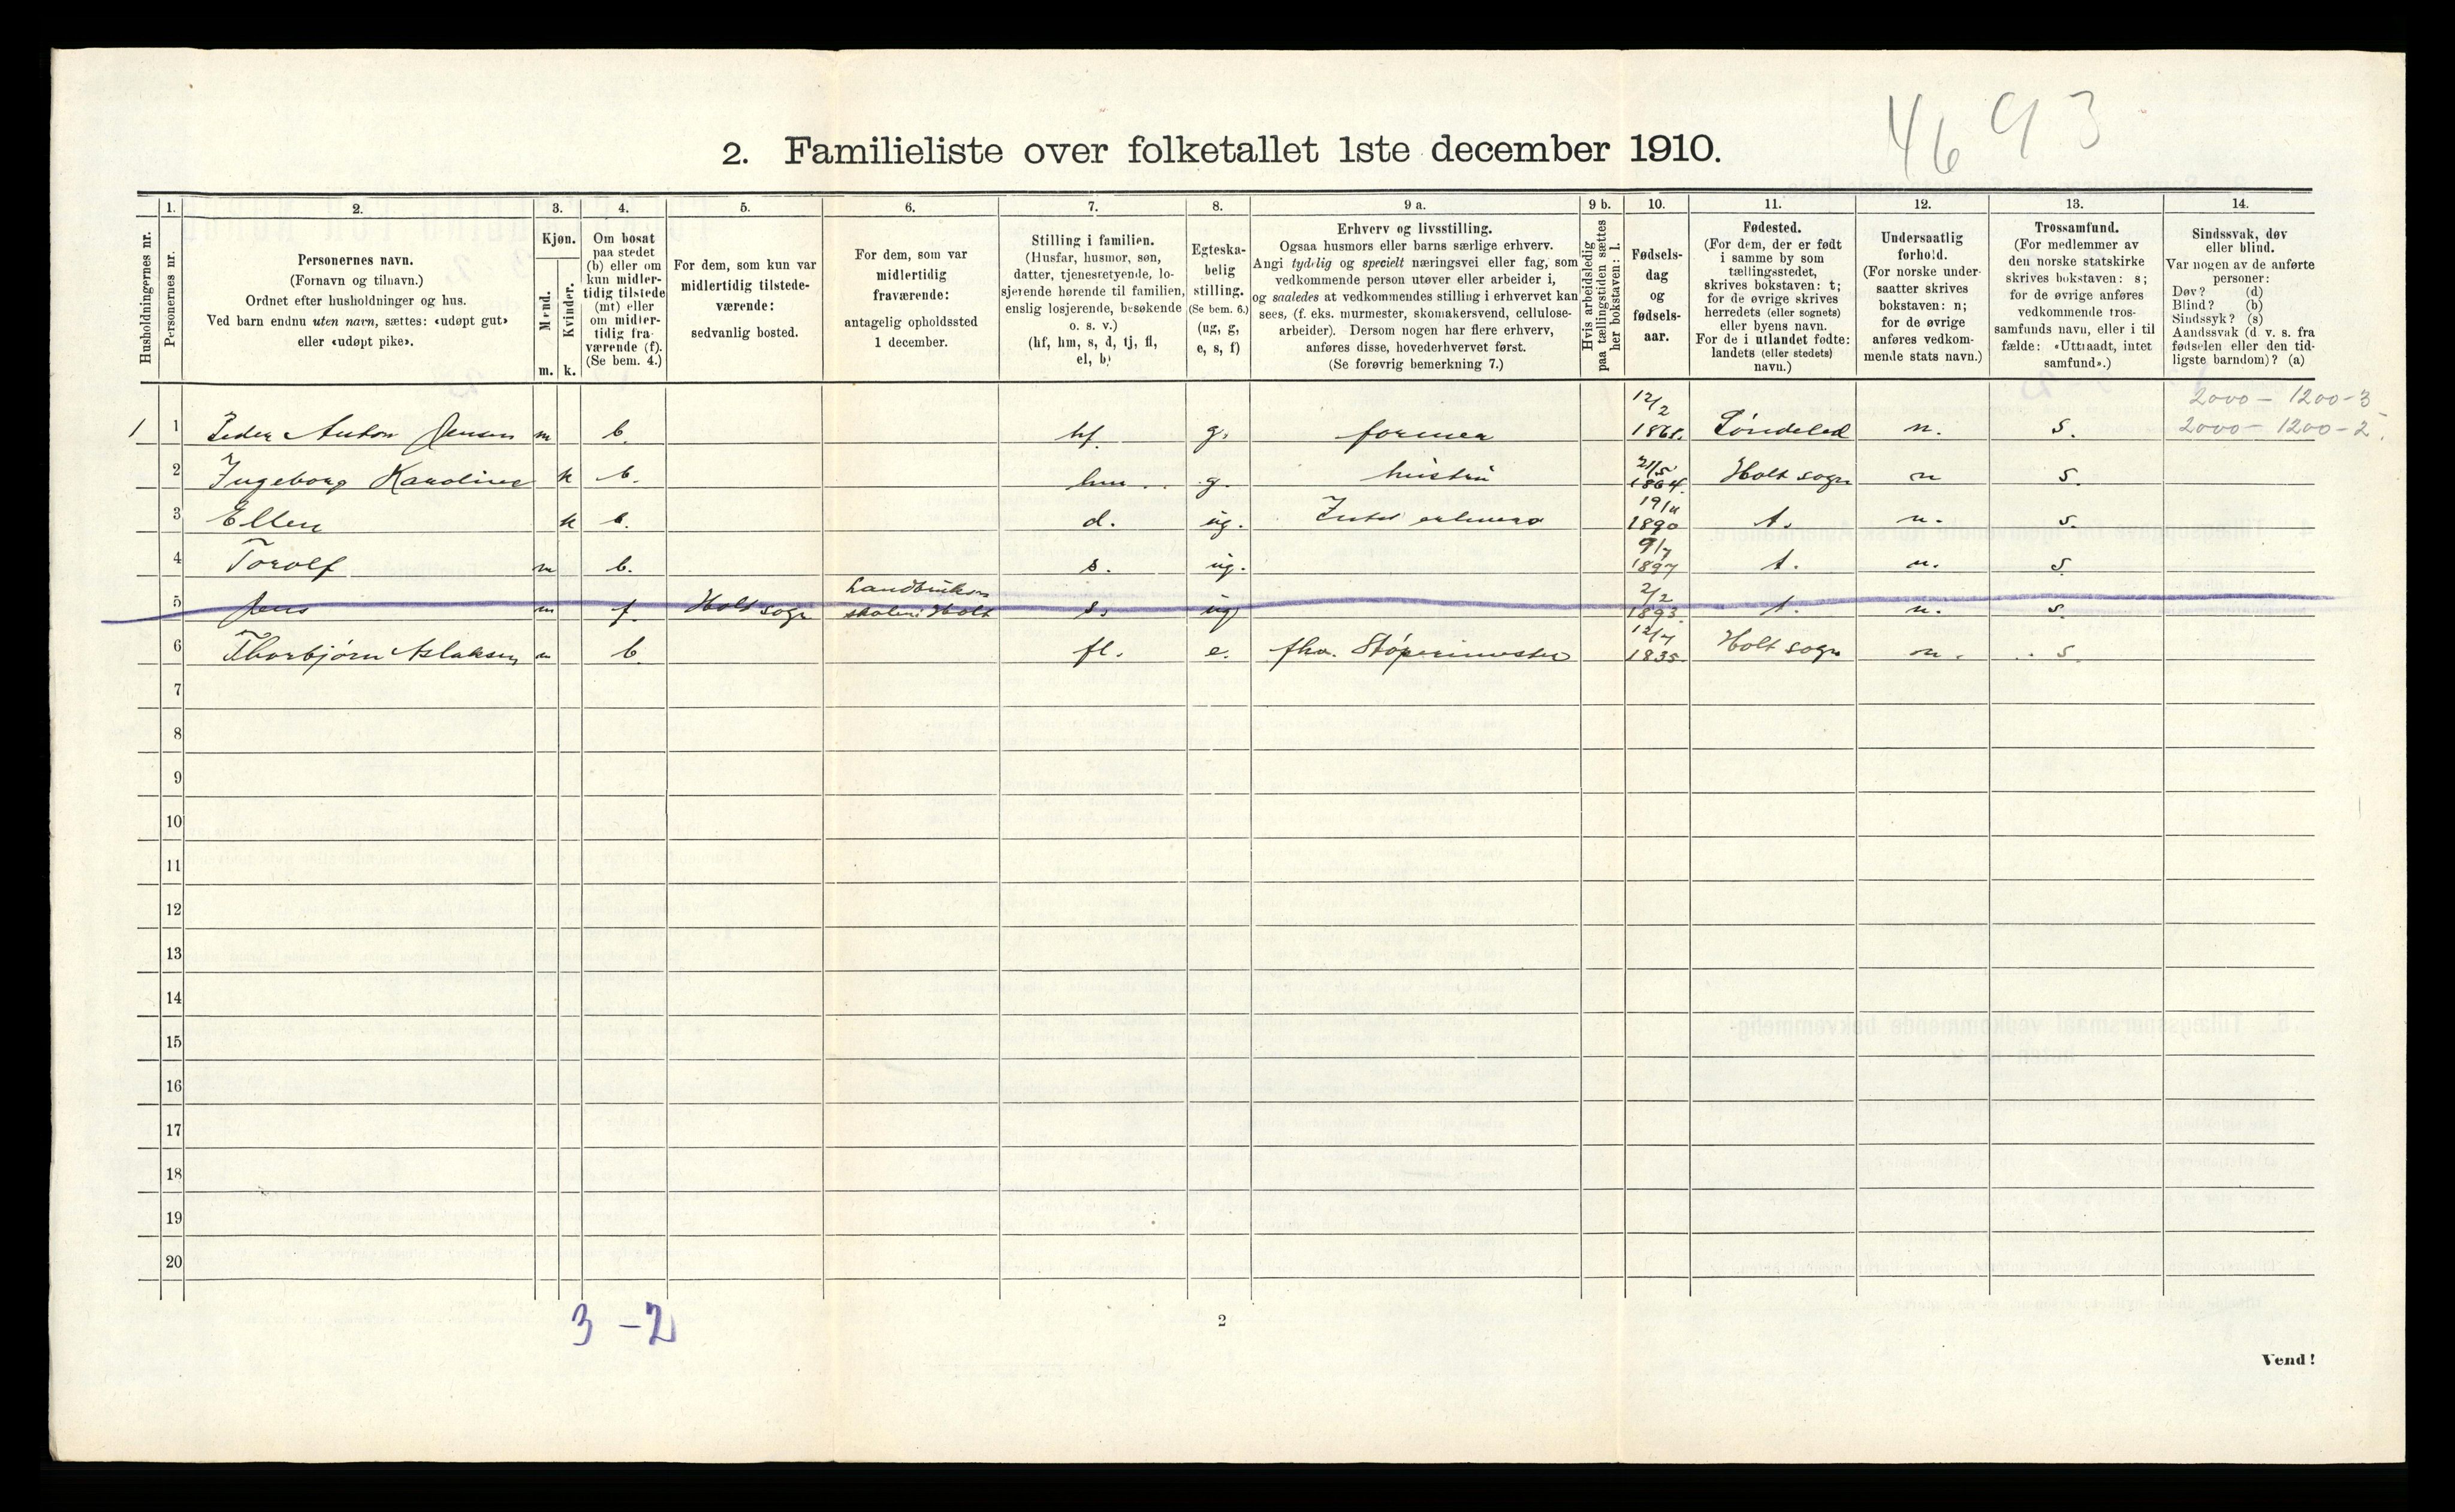 4693
2. Familieliste over folketallet 1ste december 1910.
Husholdningernes nr.
1.
Personernes nr.
2.
Personernes navn.
(Fornavn og tilnavn.)
Ordnet efter husholdninger og hus.
Ved barn endnu uten navn, sættes: «udøpt gut»
eller «udøpt pike».
3.
Kjøn.
Mænd.
Kvinder.
m. k.
4.
Om bosat
paa stedet
(b) eller om
kun midler-
tidig tilstede
(mt) eller
om midler-
tidig fra-
værende (f).
(Se bem. 4.)
5.
For dem, som kun var
midlertidig tilstede-
værende:
sedvanlig bosted.
6.
For dem, som var
midlertidig
fraværende:
antagelig opholdssted
1 december.
7.
Stilling i familien.
(Husfar, husmor, søn,
datter, tjenestetyende, lo-
sjerende hørende til familien,
enslig losjerende, besøkende
o. s. v.)
(hf, hm, s, d, tj, fl,
el, b)
8.
Egteska-
belig
stilling.
(Se bem. 6.)
(ug, g,
e, s, f)
9 a.
Erhverv og livsstilling.
Ogsaa husmors eller barns særlige erhverv.
Angi tydelig og specielt næringsvei eller fag, som
vedkommende person utøver eller arbeider i,
og saaledes at vedkommendes stilling i erhvervet kan
sees, (f. eks. murmester, skomakersvend, cellulose-
arbeider). Dersom nogen har flere erhverv,
anføres disse, hovederhvervet først.
(Se forøvrig bemerkning 7.)
9 b.
Hvis arbeidsledig
paa tællingstiden sættes
her bokstaven: l.
10.
Fødsels-
dag
og
fødsels-
aar.
11.
Fødested.
(For dem, der er født
i samme by som
tællingsstedet,
skrives bokstaven: t;
for de øvrige skrives
herredets (eller sognets)
eller byens navn.
For de i utlandet fødte:
landets (eller stedets)
navn.)
12.
Undersaatlig
forhold.
(For norske under-
saatter skrives
bokstaven: n;
for de øvrige
anføres vedkom-
mende stats navn.)
13.
Trossamfund.
(For medlemmer av
den norske statskirke
skrives bokstaven: s;
for de øvrige anføres
vedkommende tros-
samfunds navn, eller i til-
fælde: «Uttraadt, intet
samfund».)
14.
Sindssvak, døv
eller blind.
Var nogen av de anførte
personer:
Døv? (d)
Blind? (b)
Sindssyk? (s)
Aandssvak (d. v. s. fra
fødselen eller den tid-
ligste barndom)? (a)
2000 - 1200-3
1 1 Peder Anton Jensen m b. hf. g. former 12/2 1868. Søndeled n. s. 2000 - 1200-2.
2 Ingeborg Karoline k b. hm. g. hustru 21/5 1864. Holt sogn n s.
3 Ellen k b. d. ug. Intet erhverv 19/11 1890 t. n. s.
4 Torolf m b. s. ug. 9/7 1897 t. n. s.
5 Jens m f. Holt sogn Landbruks skolen i Holt s. ug 2/2 1893. t. n. s.
6 Thorbjørn Aslaksen m b. fl. e. fhv. Støperimester 12/7 1835. Holt sogn n. s.
7
8
9
10
11
12
13
14
15
16
17
18
19
20
3 - 2
2
Vend!